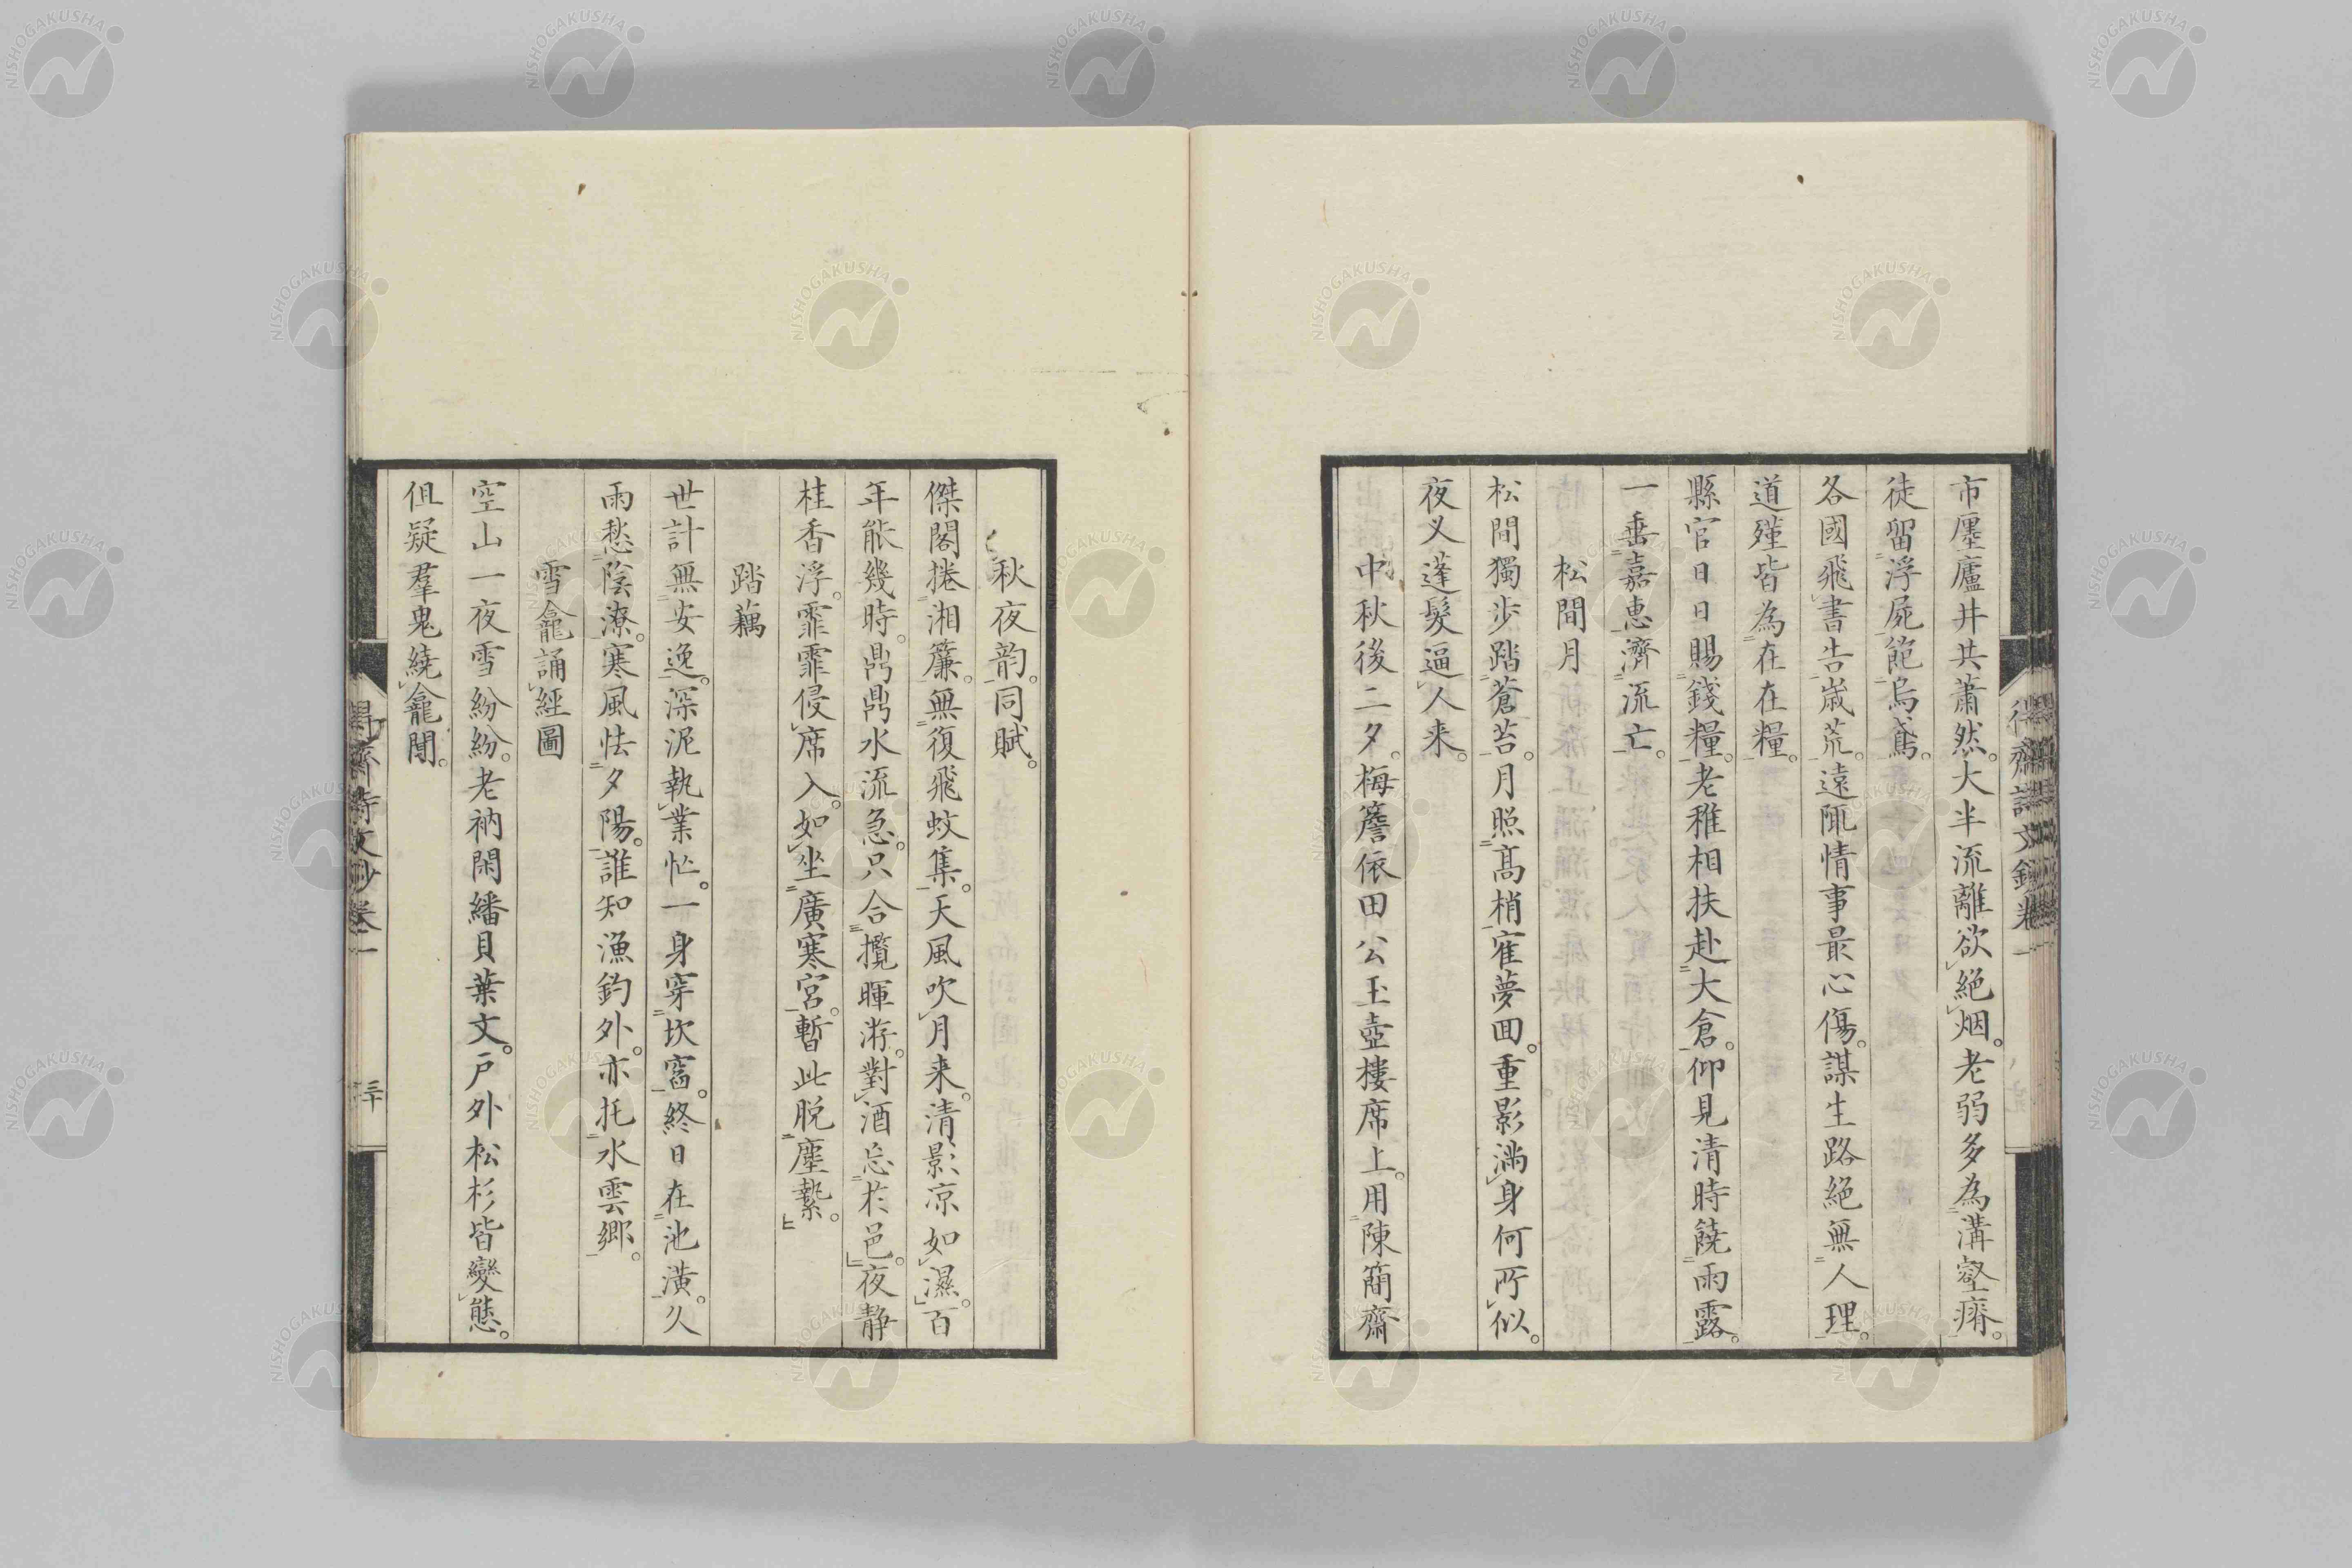 市廛廬井共蕭然。大半流離欲絶烟。老弱多為溝壑瘠。
徒留浮屍飽烏鳶。
各國飛書告歳荒。遠陬情事最心傷。謀生路絶無人理。
道殣皆為在在糧。
縣官日日賜錢糧。老稚相扶赴大倉。仰見清時饒雨露。
一垂嘉恵濟流亡。
松間月
松間獨歩踏蒼苔。月照高梢寉夢回。重影満身何所似。
夜叉蓬髮逼人来。
中秋後二夕。梅簷依田公玉壺樓席上。用陳簡齋
秋夜韵。同賦。
傑閣捲湘簾。無復飛蚊集。天風吹月来。清影凉如濕。百
年能幾時。鼎鼎水流急。只合攬暉游。對酒忘於邑。夜静
桂香浮。霏霏侵席入。如坐廣寒宮。暫此脱塵縶。
踏藕
世計無安逸。深泥執業忙。一身穿坎窞。終日在池潢。久
雨愁陰潦。寒風怯夕陽。誰知漁釣外。亦托水雲郷。
雪龕誦經圖
空山一夜雪紛紛。老衲閑繙貝葉文。戸外松杉皆變態。
但疑羣鬼繞龕聞。
三十
NISHOGAKUSHA